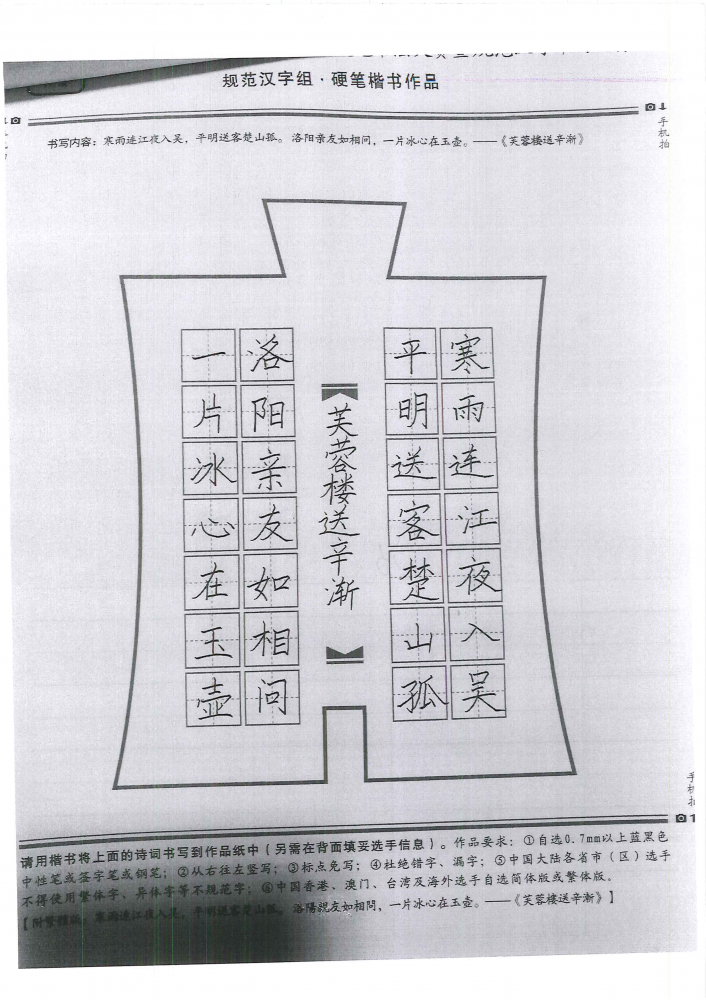 规范汉字组·硬笔楷书作品
手机拍
书写内容：寒雨连江夜入吴，平明送客楚山孤。洛阳亲友如相问，一片冰心在玉壶。——《芙蓉楼送辛渐》
寒雨连江夜入吴
平明送客楚山孤
芙蓉楼送辛渐
洛阳亲友如相问
一片冰心在玉壶
请用楷书将上面的诗词书写到作品纸中（另需在背面填妥选手信息）。作品要求：①自选0.7mm以上蓝黑色
中性笔或签字笔或钢笔；②从右往左竖写；③标点免写；④杜绝错字、漏字；⑤中国大陆各省市（区）选手
不得使用繁体字、异体字等不规范字；⑥中国香港、澳门、台湾及海外选手自选简体版或繁体版。
【附繁體版：寒雨連江夜入吳，平明送客楚山孤。洛陽親友如相問，一片冰心在玉壺。——《芙蓉楼送辛渐》】